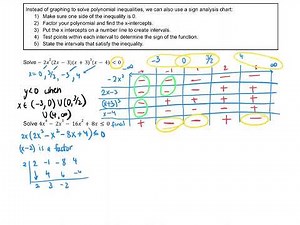 Instead of graphing to solve polynomial inequalities, we can also use a sign analysis chart:
1) Make sure one side of the inequality is 0
2) Factor your polynomial and find the x-intercepts.
3) Put the x-intercepts on a number line to create intervals.
4) Test points within each interval to determine the sign of the function.
5) State the intervals that satisfy the inequality.
Solve −2x³(2x − 3)(x + 3)³(x − 4) < 0
x = 0, 3/2, −3, 4
y < 0 when
x ∈ (−3, 0) ∪ (0, 3/2)
∪ (4, ∞)
−∞ −3 0 3/2 4 ∞
2x−3
(x+3)³
x−4
final
Solve 4x⁴ − 2x³ − 16x² + 8x ≤ 0
2x(2x³ − x² − 8x + 4) ≤ 0
(x−2) is a factor
2 2 −1 −8 4
4 6 −4
2 3 −2